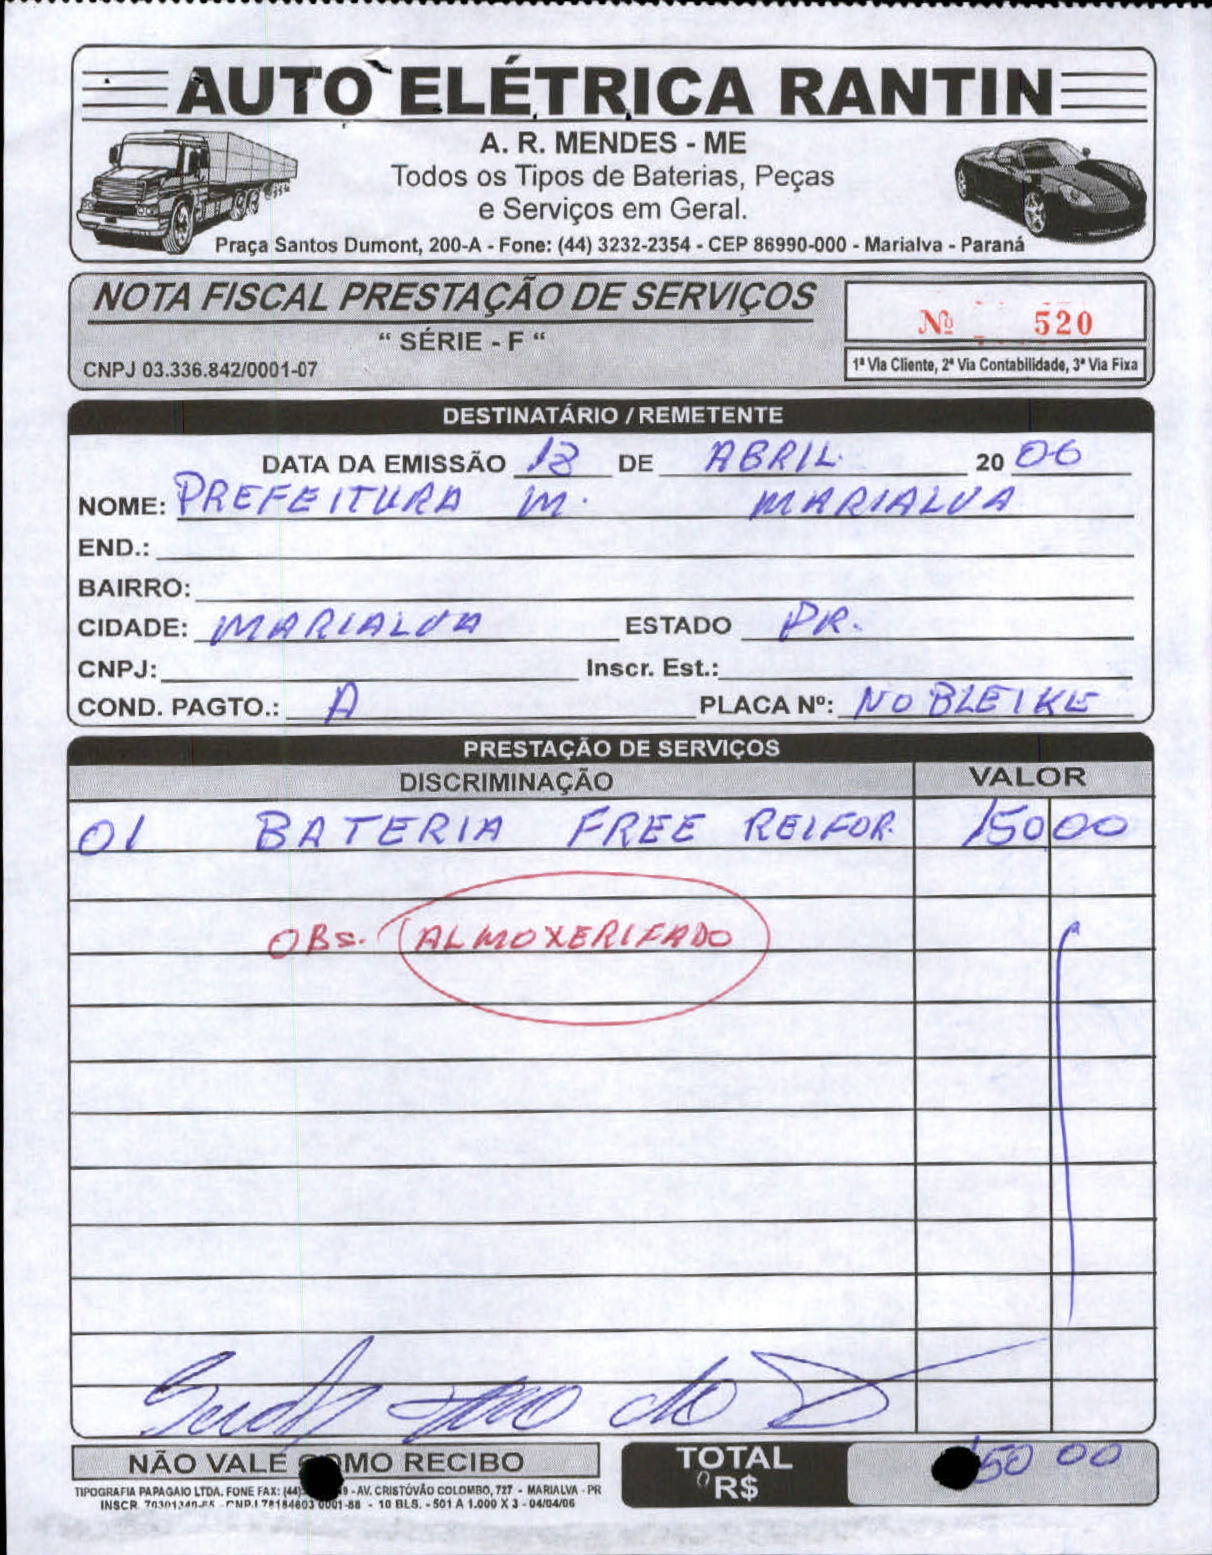 AUTO ELÉTRICA RANTIN
A. R. MENDES - ME
Todos os Tipos de Baterias, Peças
e Serviços em Geral.
Praça Santos Dumont, 200-A - Fone: (44) 3232-2354 - CEP 86990-000 - Marialva - Paraná
NOTA FISCAL PRESTAÇÃO DE SERVIÇOS
“ SÉRIE - F “
CNPJ 03.336.842/0001-07
Nº 520
1ª Via Cliente, 2ª Via Contabilidade, 3ª Via Fixa
DESTINATÁRIO / REMETENTE
DATA DA EMISSÃO 18 DE ABRIL 20 06
NOME: PREFEITURA M. MARIALVA
END.:
BAIRRO:
CIDADE: MARIALVA ESTADO PR.
CNPJ: Inscr. Est.:
COND. PAGTO.: A PLACA Nº: NOBLEIKE
PRESTAÇÃO DE SERVIÇOS
DISCRIMINAÇÃO VALOR
01 BATERIA FREE REIFOR. 150 00
OBS. ALMOXERIFADO
NÃO VALE COMO RECIBO
TOTAL R$ 150 00
TIPOGRAFIA PAPAGAIO LTDA. FONE FAX: (44) - AV. CRISTÓVÃO COLOMBO, 727 - MARIALVA - PR
INSCR. CNPJ 78184603 0001-88 - 10 BLS. - 501 A 1.000 X 3 - 04/04/06